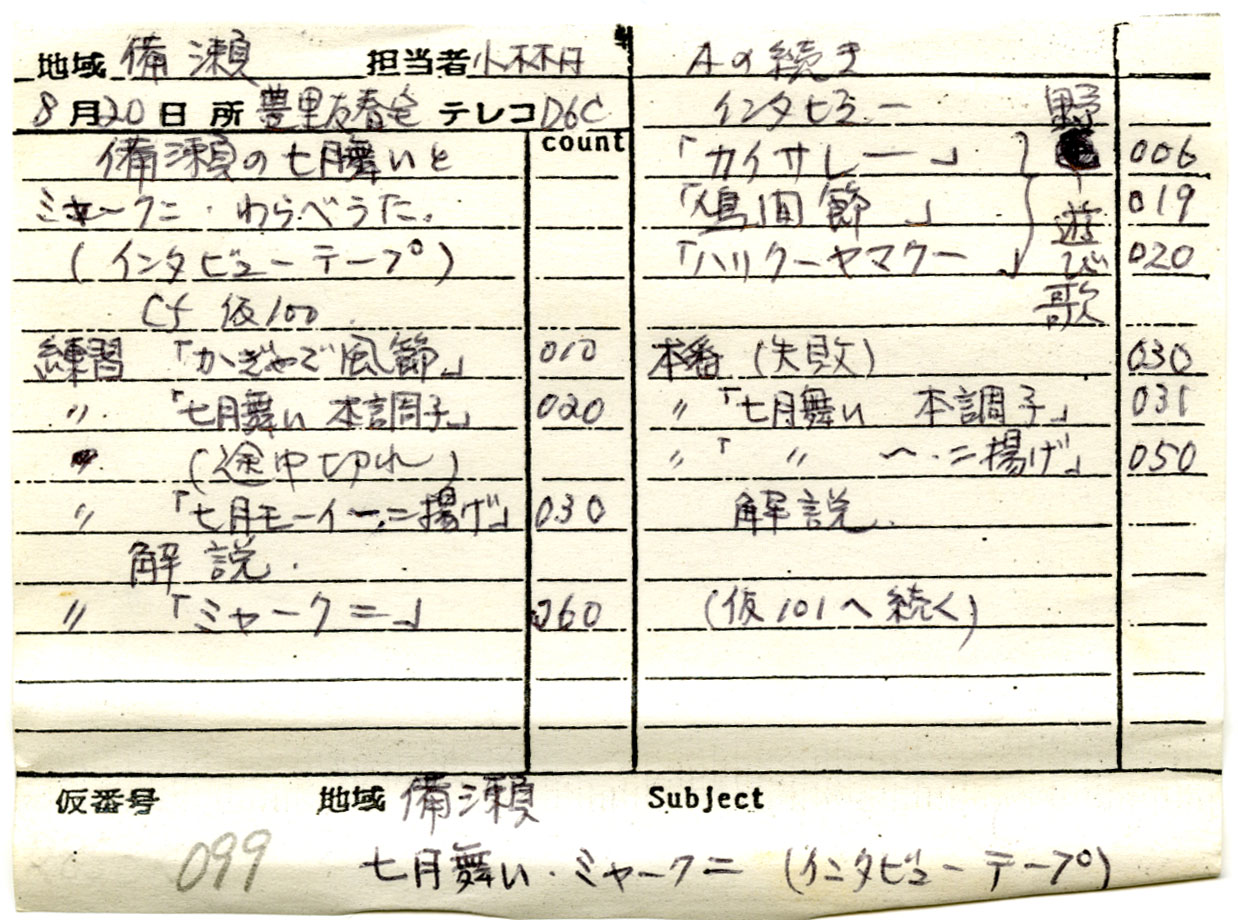 地域 備瀬 担当者 小林
8月20日 所 豊里友春宅 テレコ D6C
count
備瀬の七月舞いと
ミャークニ・わらべうた。
(インタビューテープ)
Cf 仮100
練習 「かぎやで風節」 010
〃 「七月舞い 本調子」 020
(途中切れ)
〃 「七月モーイ〜二揚げ」 030
解説.
〃 「ミャークニー」 060
Aの続き
インタビュー
「カイサレー」 006
「鳩間節」 019
「ハリクーヤマクー」 020
野遊び歌
本番 (失敗) 030
〃 「七月舞い 本調子」 031
〃 「 〃 〜・二揚げ」 050
解説.
(仮101へ続く)
仮番号 地域 備瀬 Subject
099 七月舞い・ミャークニ (インタビューテープ)